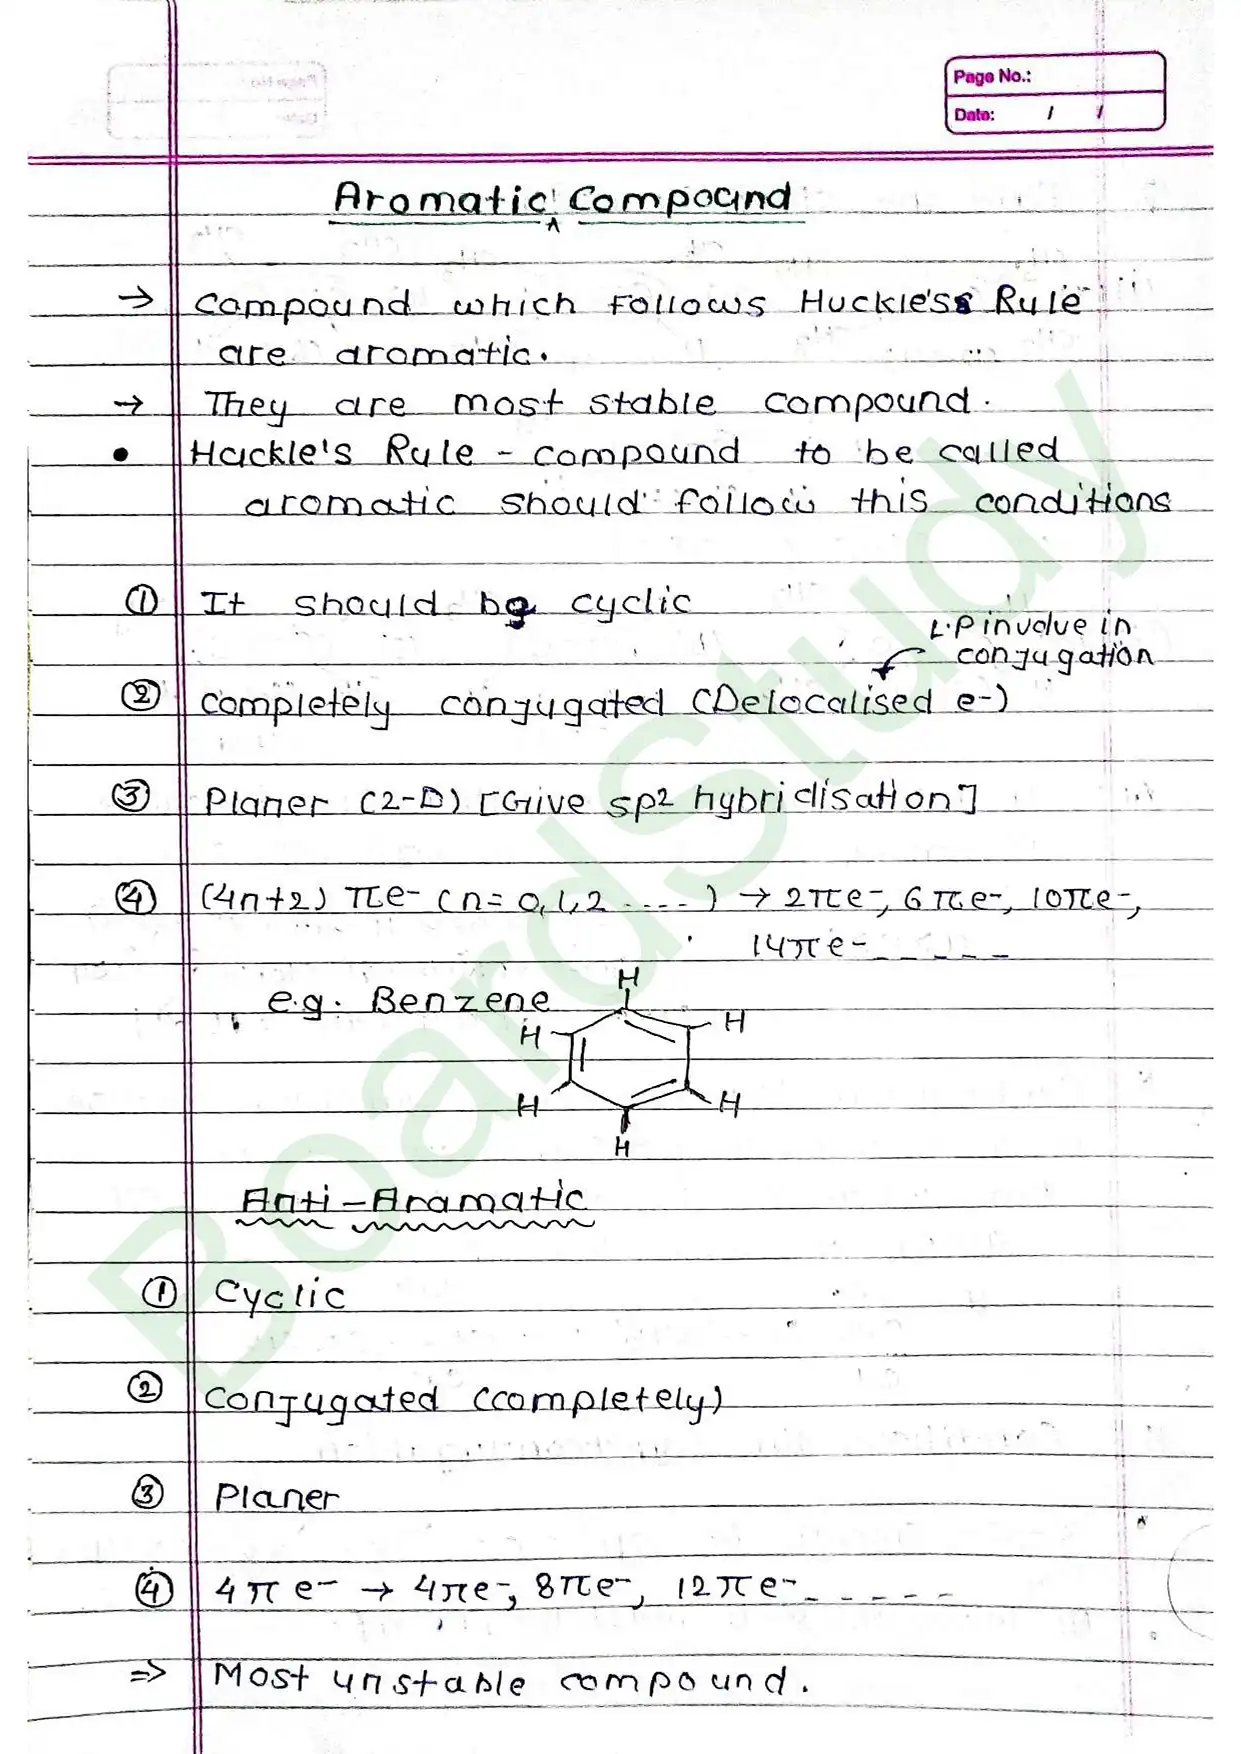 Page No.:
Date: / /
Aromatic Compound
→ Compound which follows Huckle's Rule
are aromatic.
→ They are most stable compound.
• Huckle's Rule - compound to be called
aromatic should follow this conditions
① It should be cyclic
L.P involve in
conjugation
② Completely conjugated (Delocalised e-)
③ Planer (2-D) [Give sp2 hybridisation]
④ (4n+2) πe- (n= 0,1,2 ....) → 2πe-, 6πe-, 10πe-,
14πe- _ _ _ _ _
e.g. Benzene
H
H H
H H
H
Anti-Aromatic
① Cyclic
② Conjugated (completely)
③ Planer
④ 4π e- → 4πe-, 8πe-, 12πe- _ _ _ _ _
⇒ Most unstable compound.
BoardStudy